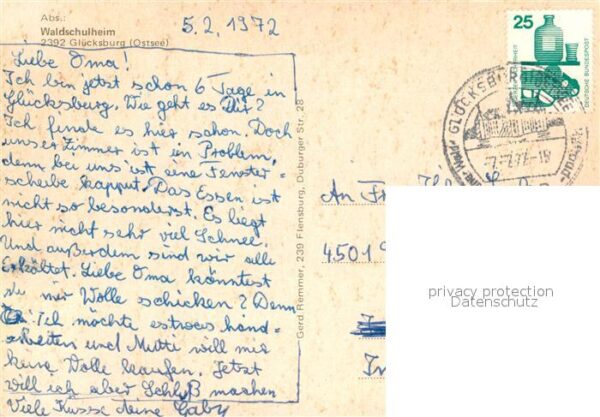 Abs.:
5.2.1972
Waldschulheim
2392 Glücksburg (Ostsee)
Liebe Oma!
Ich bin jetzt schon 6 Tage in
Glücksburg. Wie geht es Dir?
Ich finde es hier schon. Doch
unser Zimmer ist ein Problem,
denn bei uns ist eine Fenster-
scheibe kapput. Das Essen ist
nicht so besonderst. Es liegt
hier nicht sehr viel Schnee.
Und außerdem sind wir alle
Erkältet. Liebe Oma könntest
du mir Wolle schicken? Denn
Ich möchte etwas hand-
arbeiten und Mutti will mir
keine Wolle kaufen. Jetzt
will ich aber Schluß machen
Viele Küsse deine Gaby
Gerd Remmer, 239 Flensburg, Duburger Str. 28
25
DEUTSCHE BUNDESPOST
GLÜCKSBURG
-7.-2.72-19
An
4501
privacy protection
Datenschutz